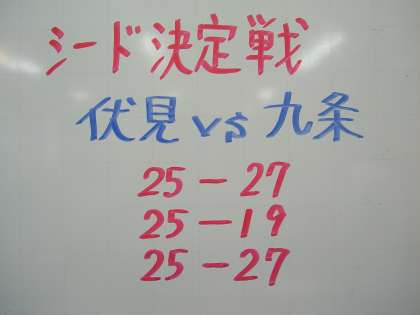 シード決定戦
伏見 vs 九条
25 － 27
25 － 19
25 － 27